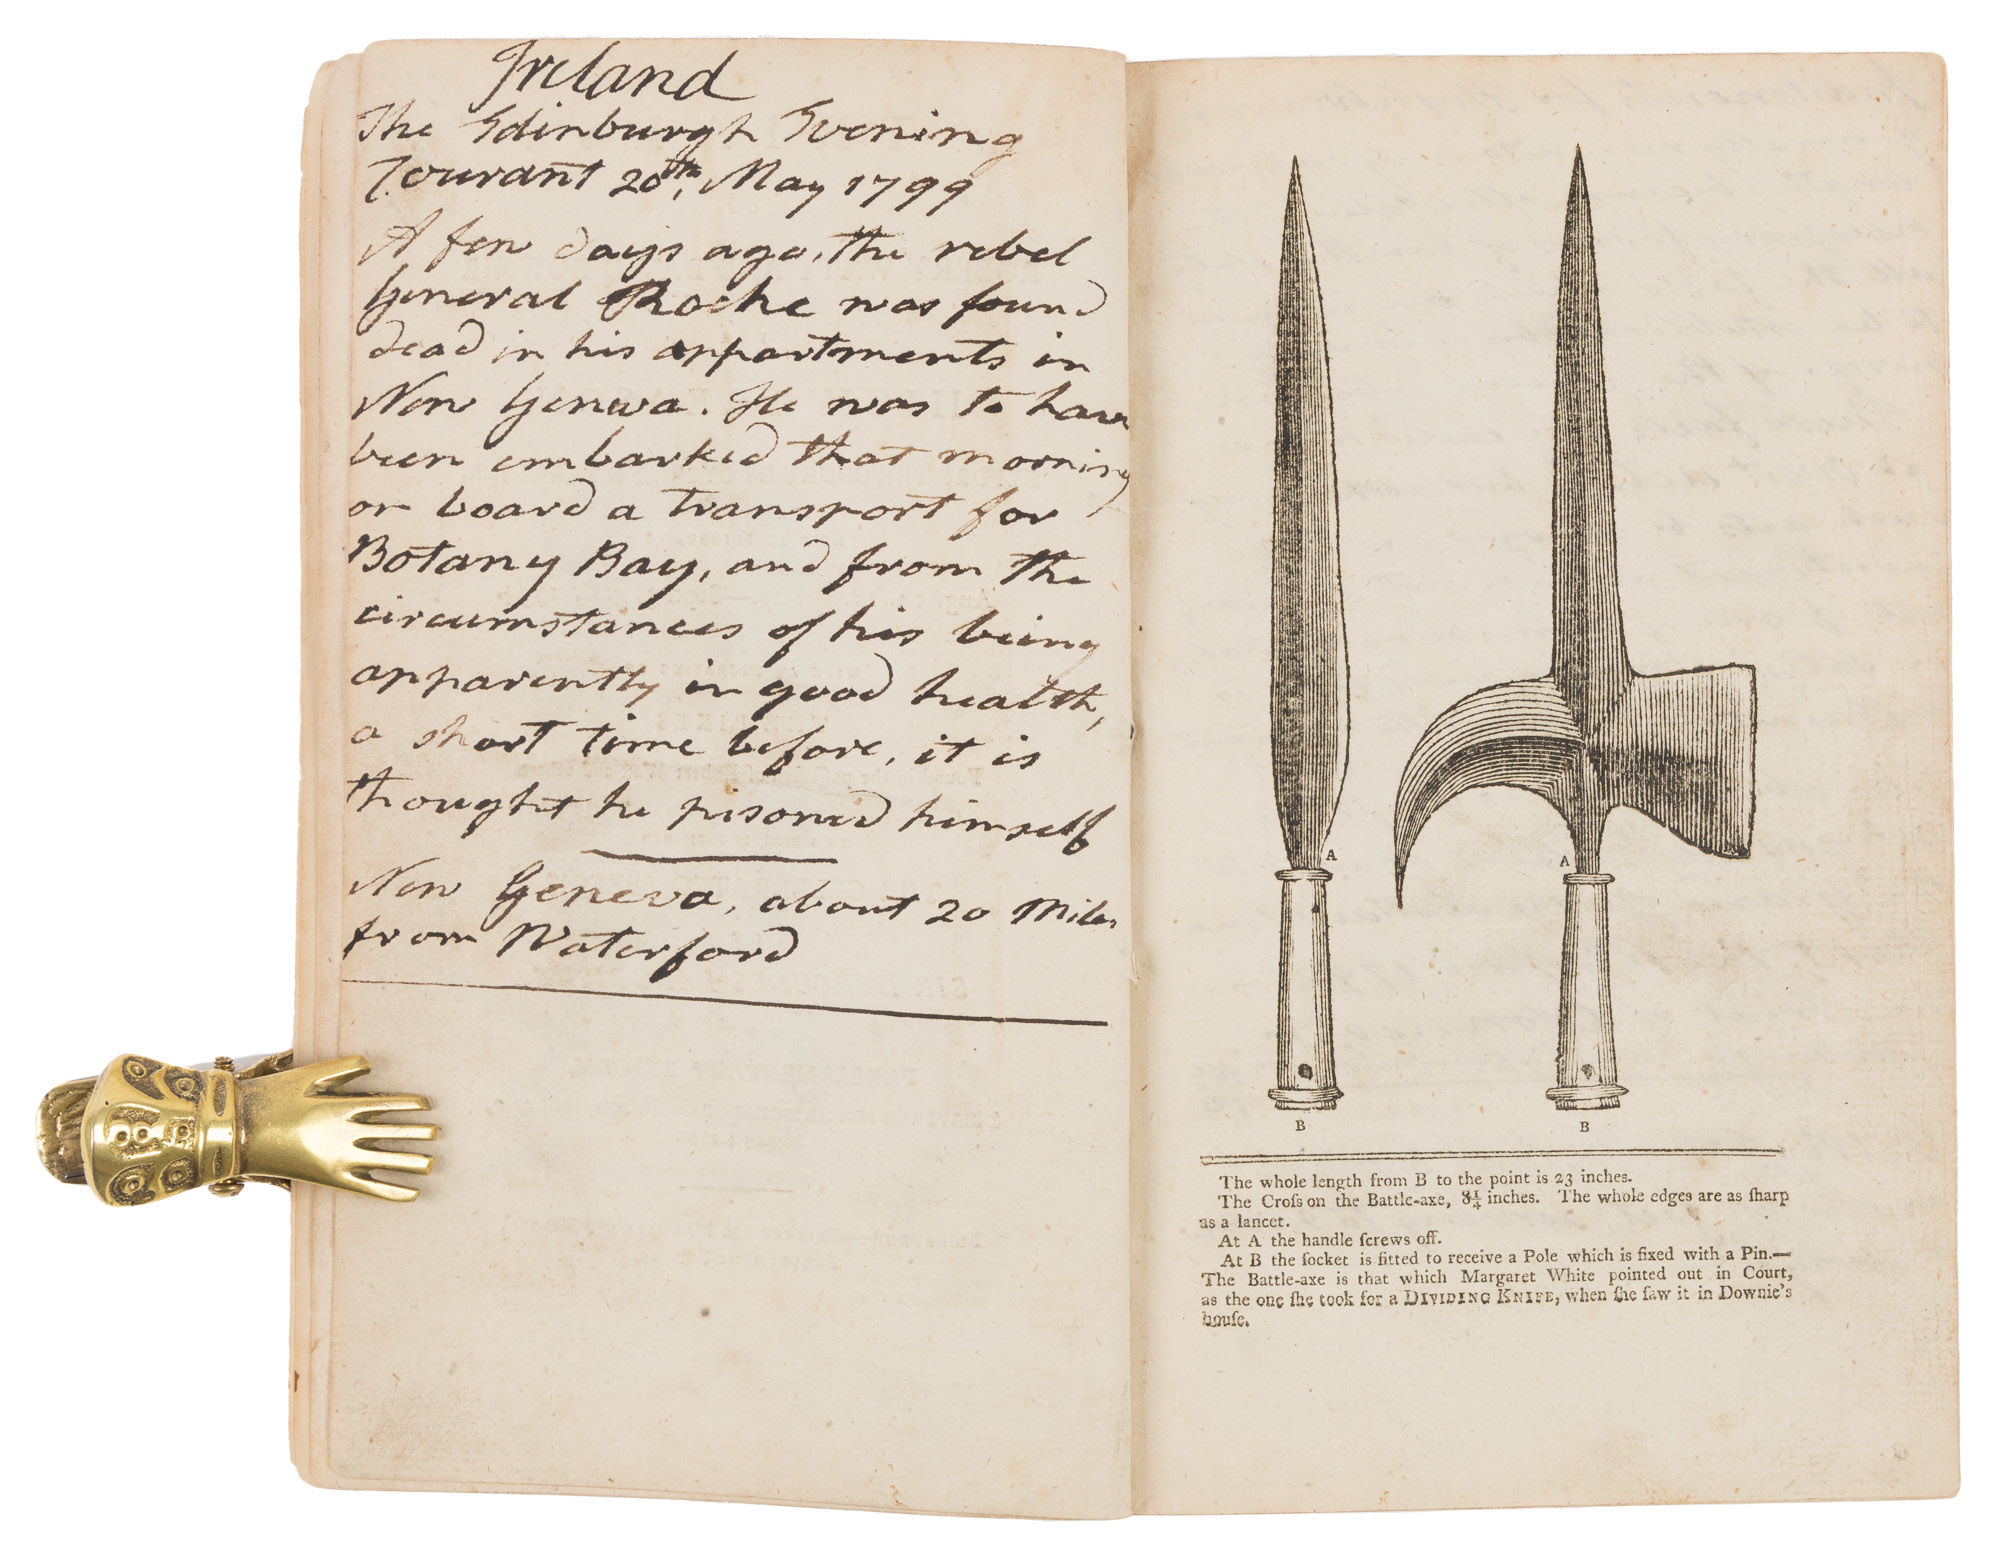 Ireland
The Edinburgh Evening
Courant 20th, May 1799
A few days ago, the rebel
General Roche was found
dead in his appartments in
New Geneva. He was to have
been embarked that morning
on board a transport for
Botany Bay, and from the
circumstances of his being
apparently in good health,
a short time before, it is
thought he pisoned himself
New Geneva, about 20 Miles
from Waterford
A
A
B
B
The whole length from B to the point is 23 inches.
The Croſs on the Battle-axe, 8¼ inches. The whole edges are as ſharp
as a lancet.
At A the handle ſcrews off.
At B the ſocket is fitted to receive a Pole which is fixed with a Pin.—
The Battle-axe is that which Margaret White pointed out in Court,
as the one ſhe took for a DIVIDING KNIFE, when ſhe ſaw it in Downie's
houſe.